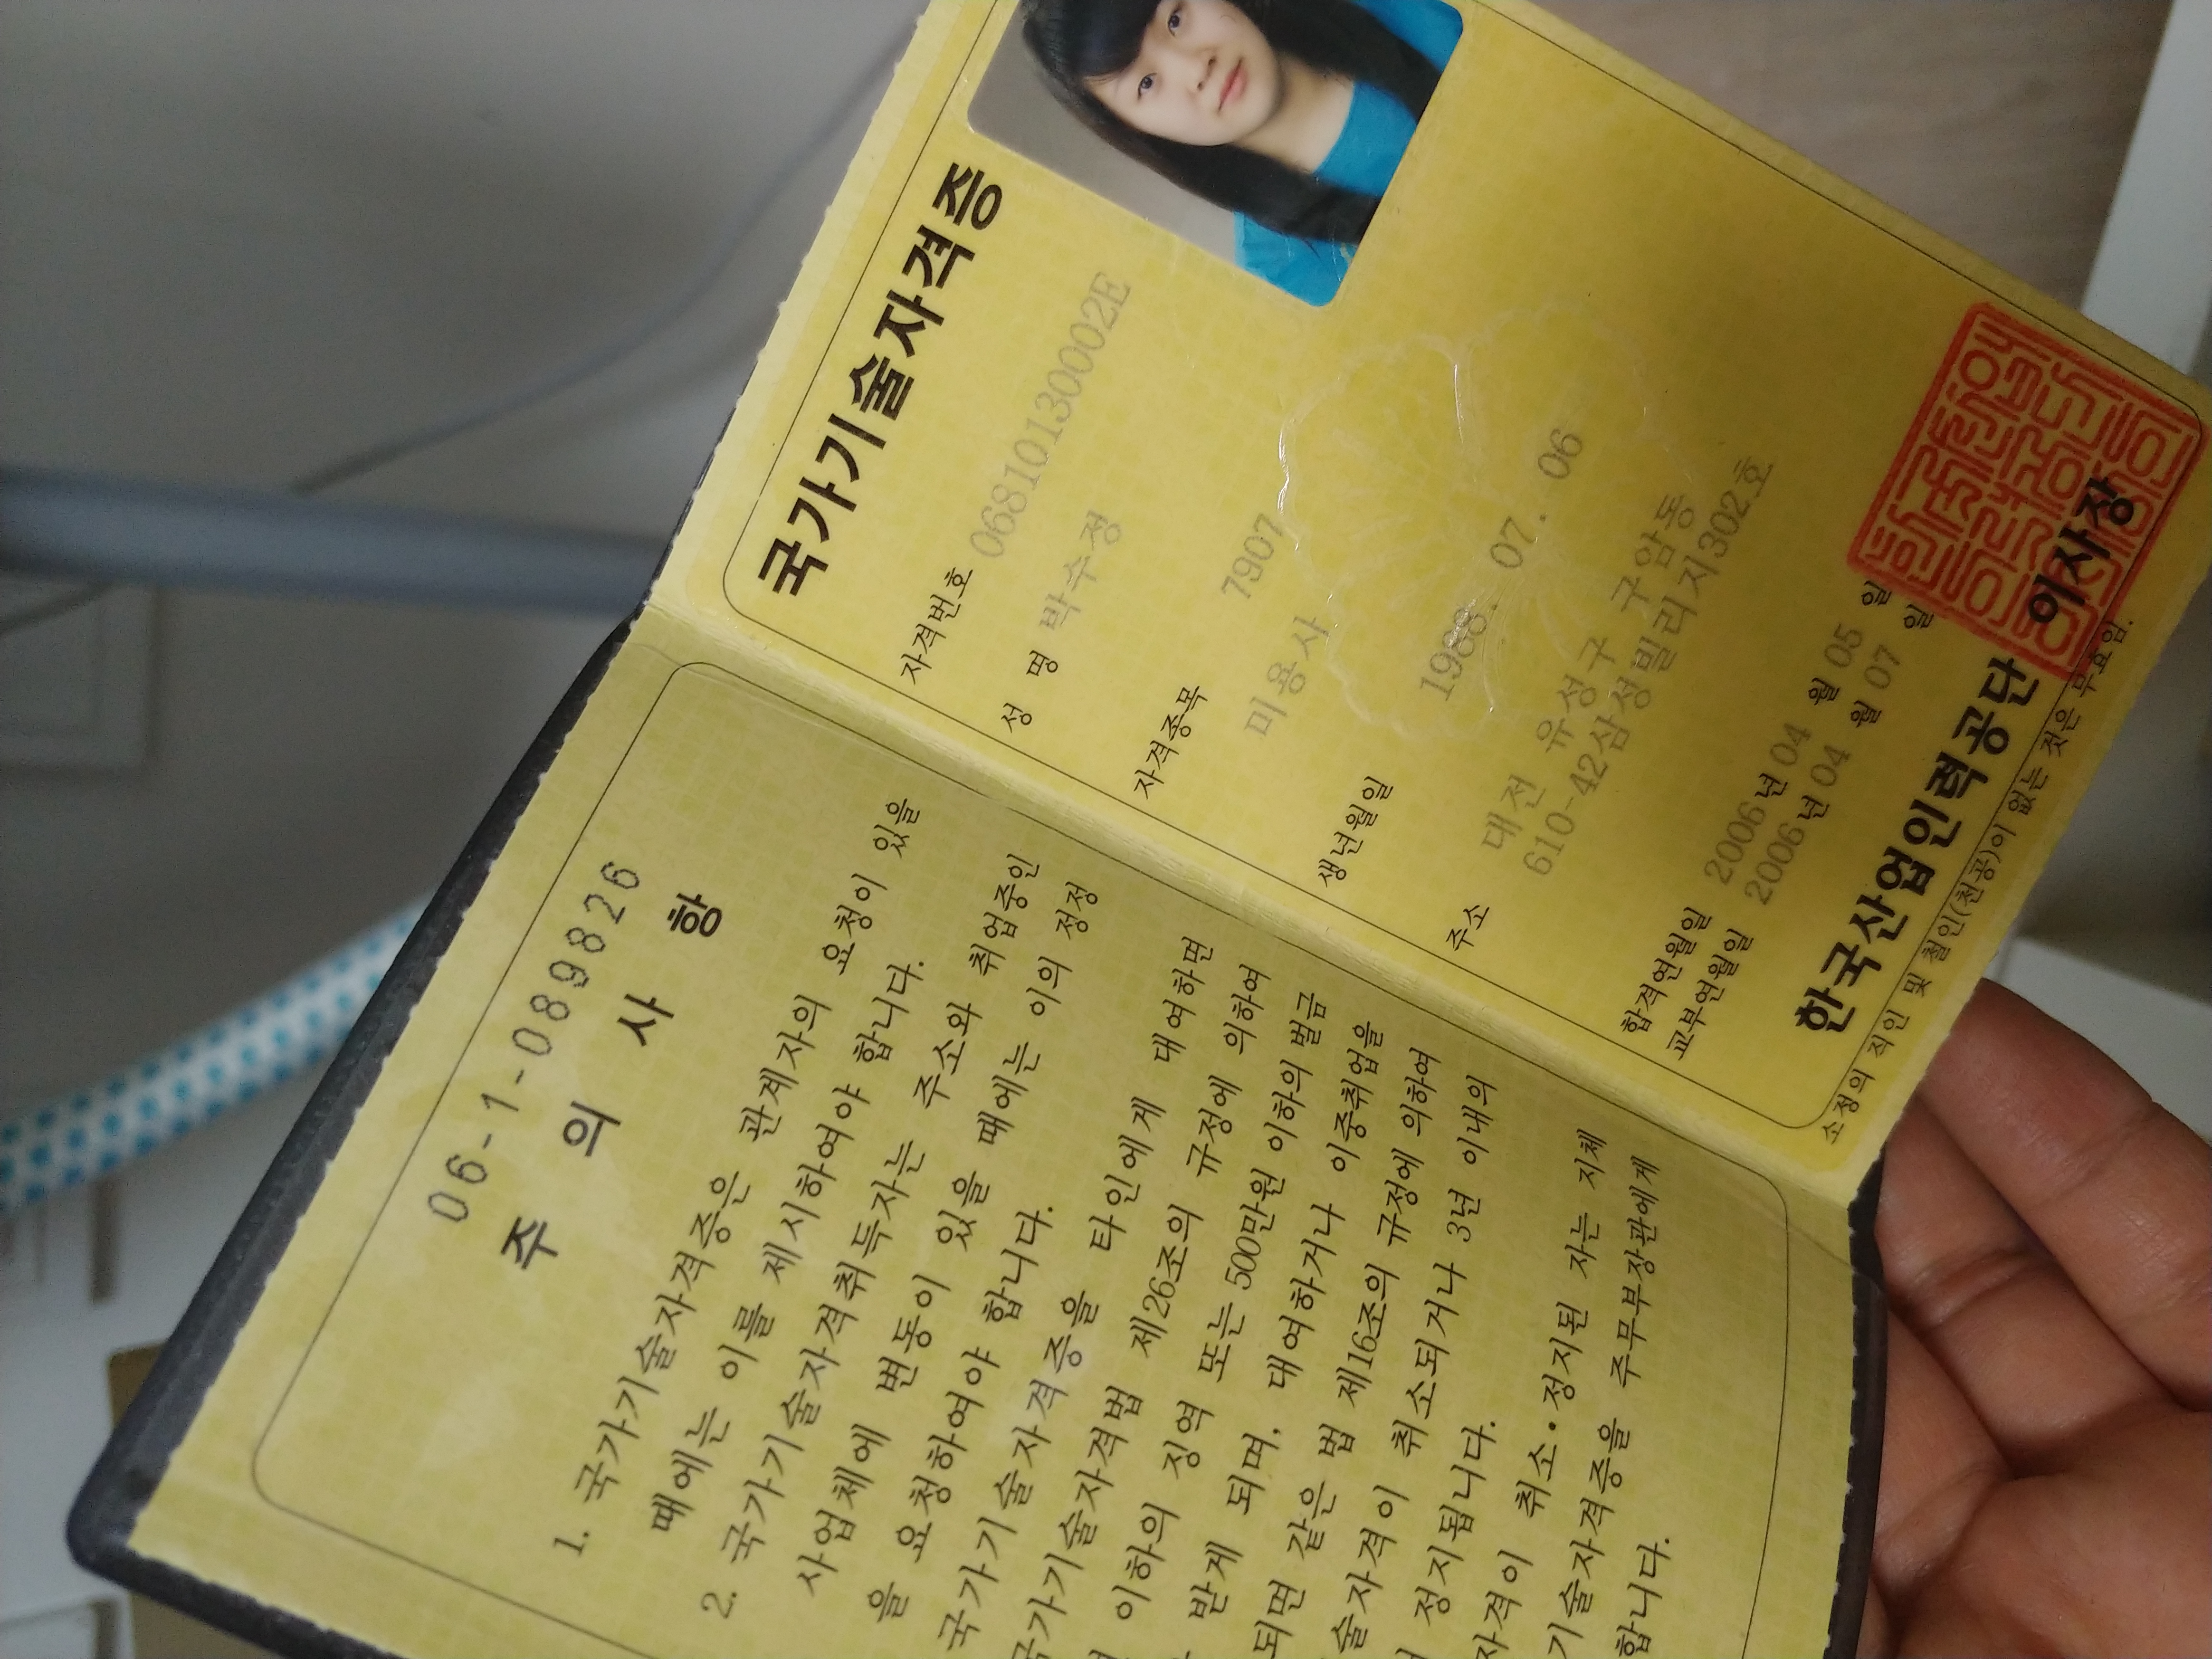 국가기술자격증
자격번호 06810130002E
성 명 박수정
자격종목 7907
미용사
생년월일 1988. 07. 06
주소 대전 유성구 구암동
610-42삼성빌리지302호
합격연월일 2006년 04 월 05 일
교부연월일 2006년 04 월 07 일
한국산업인력공단 이사장
소정의 직인 및 철인(천공)이 없는 것은 무효임.
06-1-089826
주 의 사 항
1. 국가기술자격증은 관계자의 요청이 있을
때에는 이를 제시하여야 합니다.
2. 국가기술자격취득자는 주소와 취업중인
사업체에 변동이 있을 때에는 이의 정정
을 요청하여야 합니다.
국가기술자격증을 타인에게 대여하면
국가기술자격법 제26조의 규정에 의하여
이하의 징역 또는 500만원 이하의 벌금
받게 되며, 대여하거나 이중취업을
되면 같은 법 제16조의 규정에 의하여
술자격이 취소되거나 3년 이내의
정지됩니다.
자격이 취소·정지된 자는 지체
기술자격증을 주무부장관에게
합니다.